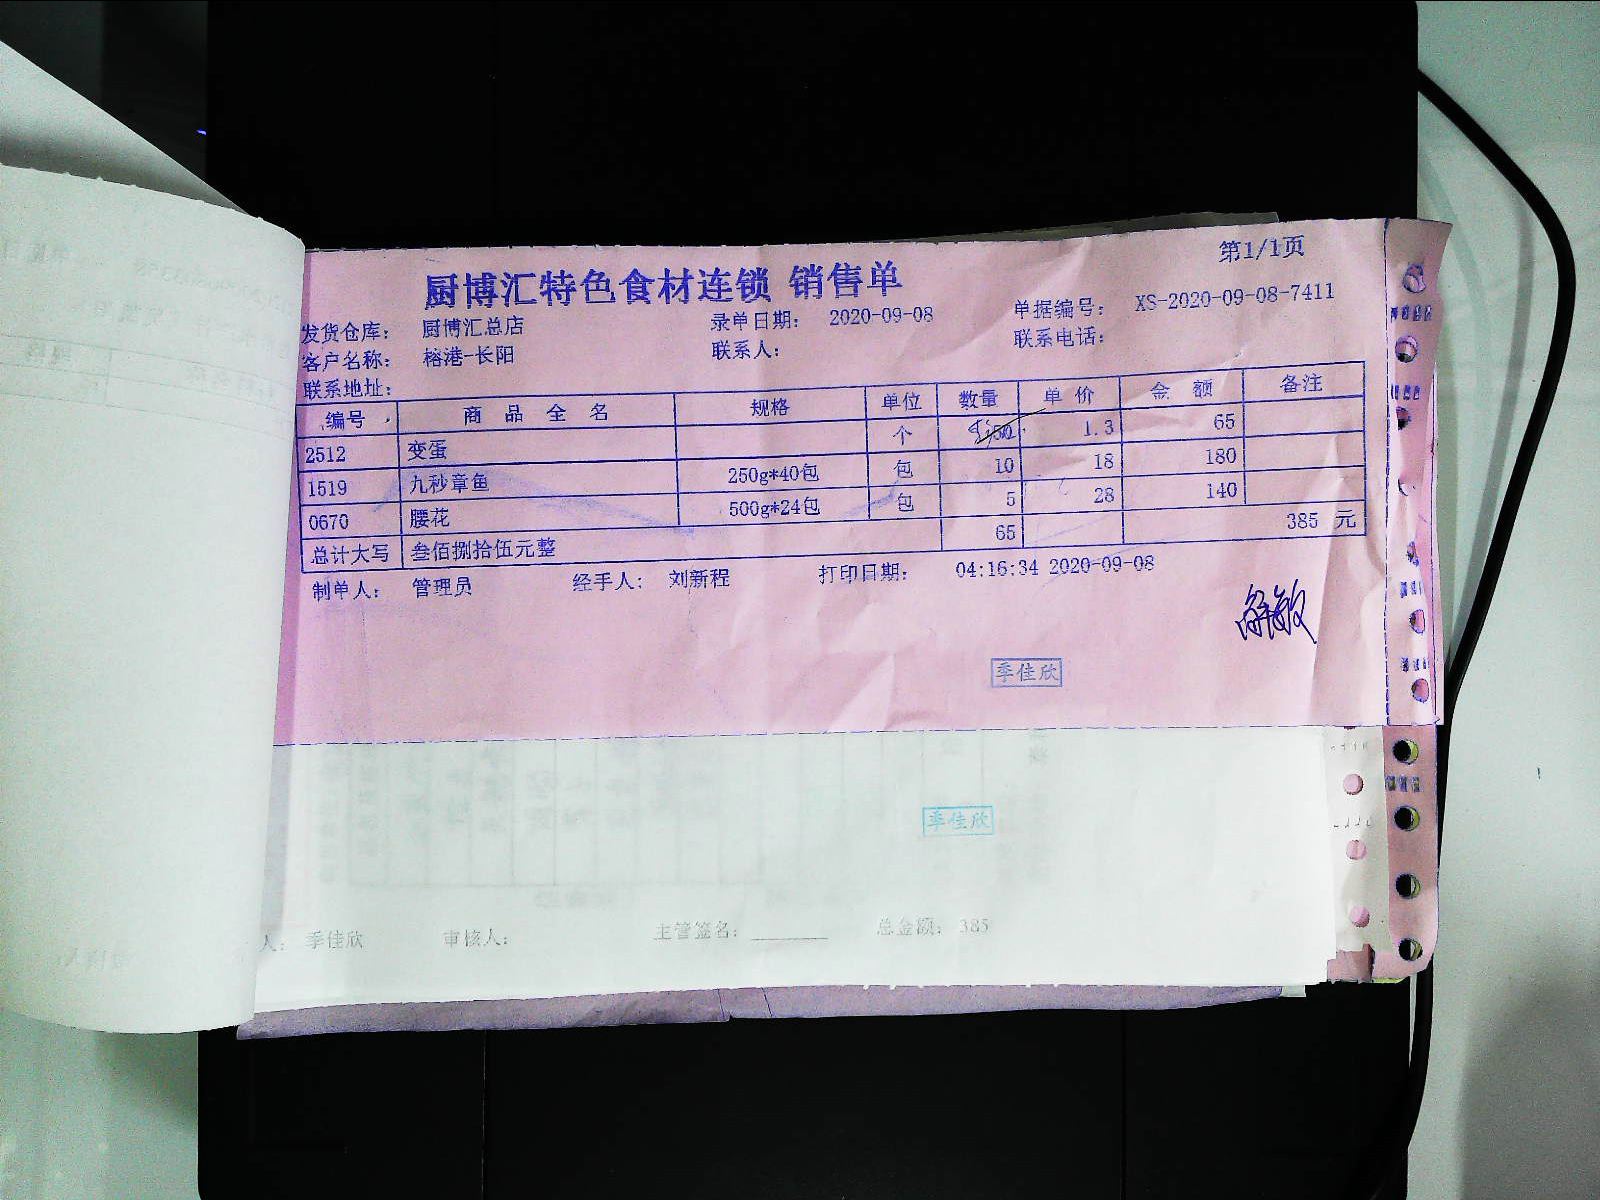 第1/1页
厨博汇特色食材连锁 销售单
发货仓库: 厨博汇总店 录单日期: 2020-09-08 单据编号: XS-2020-09-08-7411
客户名称: 榕港-长阳 联系人: 联系电话:
联系地址:
编号 商品全名 规格 单位 数量 单价 金额 备注
2512 变蛋 个 50 1.3 65
1519 九秒章鱼 250g*40包 包 10 18 180
0670 腰花 500g*24包 包 5 28 140
总计大写 叁佰捌拾伍元整 65 385 元
制单人: 管理员 经手人: 刘新程 打印日期: 04:16:34 2020-09-08
季佳欣
季佳欣
人: 季佳欣 审核人: 主管签名: ________ 总金额: 385